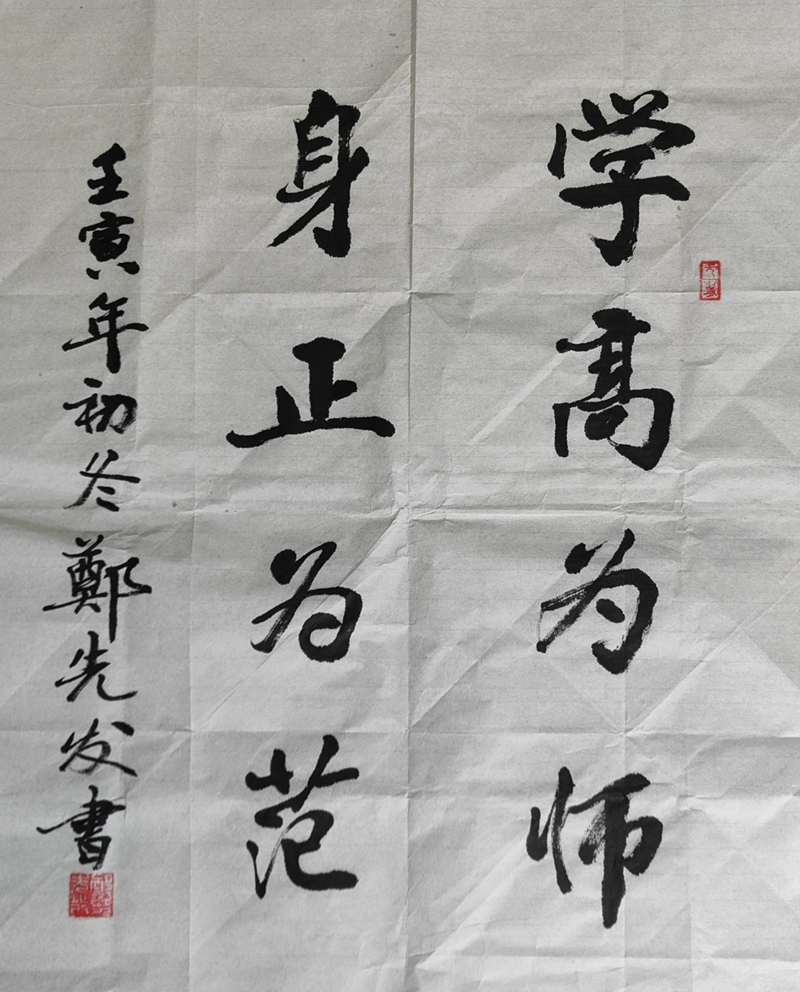 学高为师
身正为范
壬寅年初冬鄭先发書